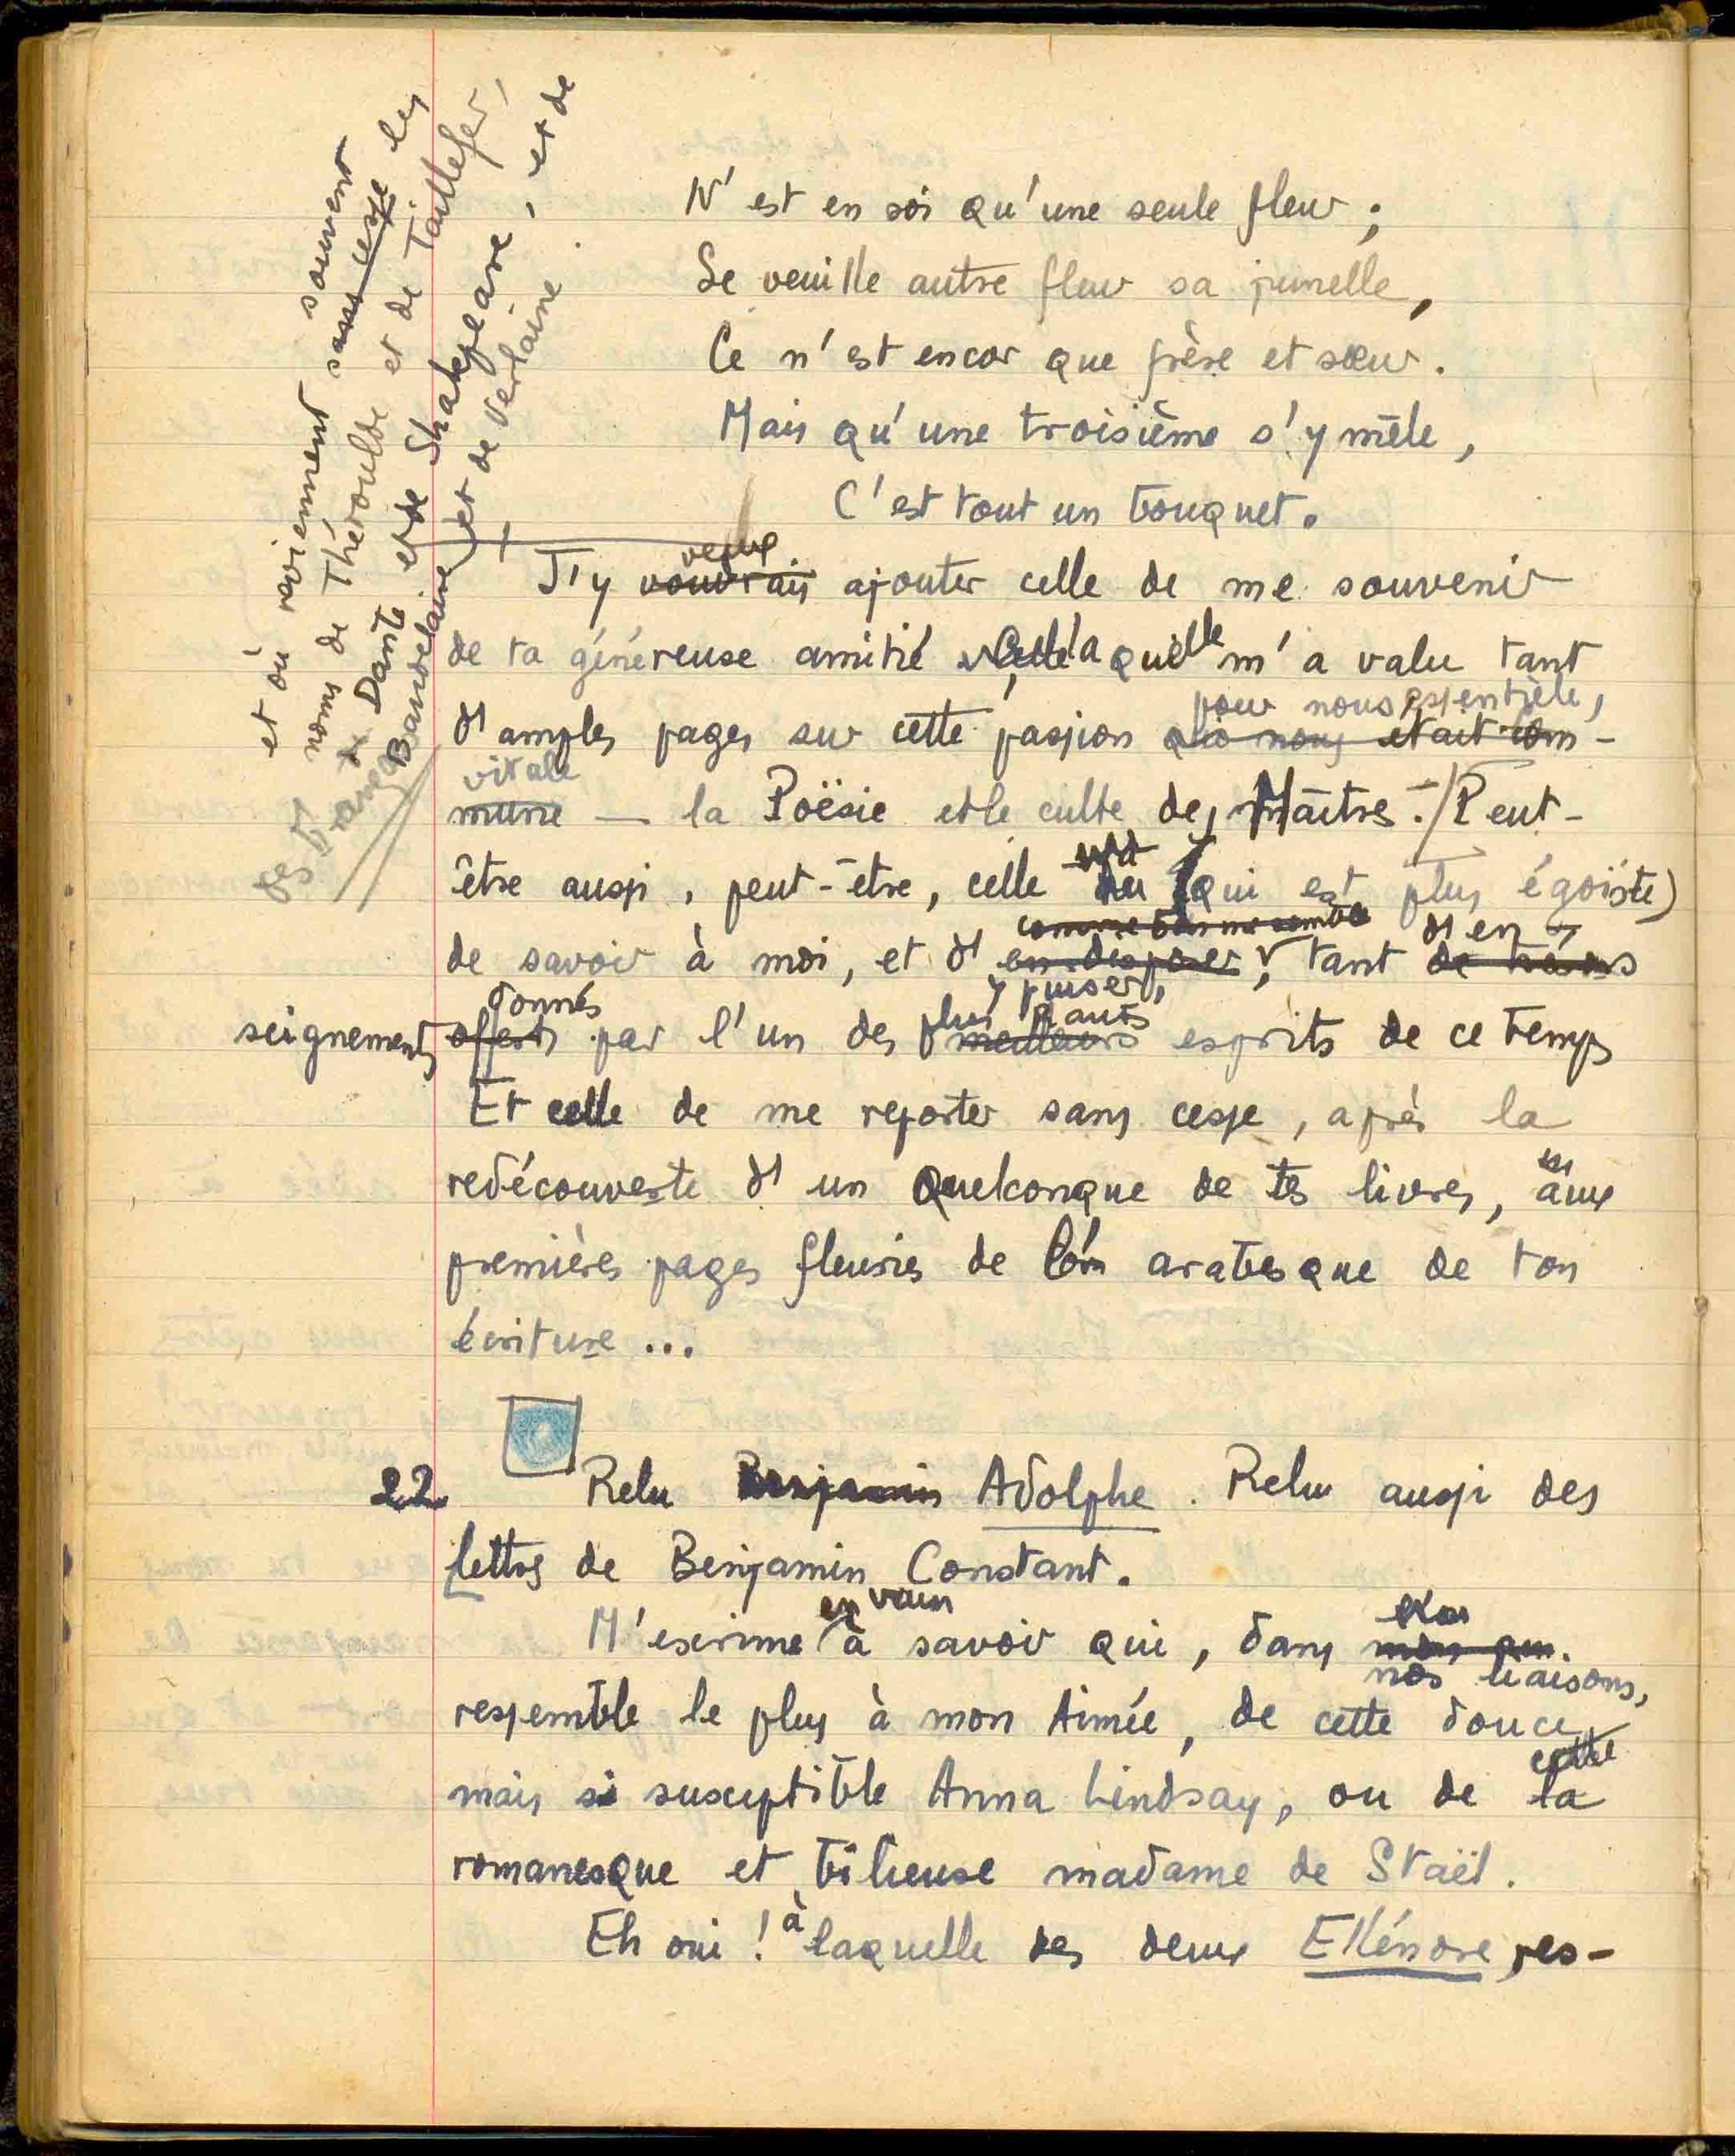 N'est en soi qu'une seule fleur ;
Se veuille autre fleur sa jumelle,
Ce n'est encor que frère et sœur.
Mais qu'une troisième s'y mêle,
C'est tout un bouquet.
et où reviennent souvent
sans cesse les
noms de Théroulde et de Taillefer,
de Dante et de Shakespeare, et de
Baudelaire et de Verlaine.
veux
J'y voudrais ajouter celle de me souvenir
de ta généreuse amitié laquelle m'a valu tant
pour nous essentielle,
d'amples pages sur cette passion qui nous était com-
vitale
mune — la Poësie et le culte des Maîtres. Peut-
être aussi, peut-être, celle (qui est plus égoïste)
comme bon me semble
de savoir à moi, et d'en disposer, tant d'en
y puiser,
donnés
plus hauts
seignements offerts par l'un des meilleurs esprits de ce temps
Et celle de me reporter sans cesse, après la
redécouverte d'un quelconque de tes livres, aux
premières pages fleuries de l'arabesque de ton
écriture ...
22. Relu Benjamin Adolphe. Relu aussi des
lettres de Benjamin Constant.
en vain
M'escrime à savoir qui, dans
nos liaisons,
ressemble le plus à mon Aimée, de cette douce
cette
mais si susceptible Anna Lindsay, ou de la
romanesque et bilieuse madame de Staël.
Eh oui ! à laquelle des deux Ellénore res-